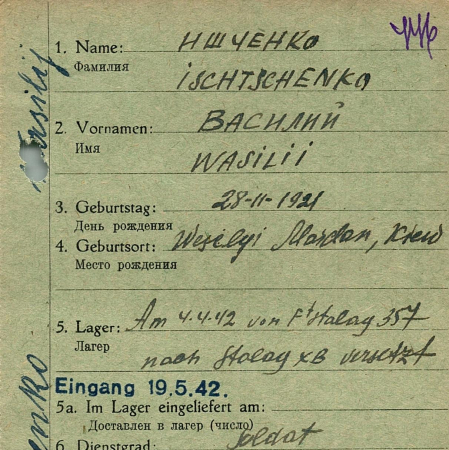 1. Name: ИШЧЕНКО
Фамилия
ISCHTSCHENKO
2. Vornamen: ВАСИЛИЙ
Имя
WASILII
3. Geburtstag: 28-11-1921
День рождения
4. Geburtsort: Weselyi Mardan, Kiew
Место рождения
5. Lager: Am 4.4.42 von F'Stalag 357
Лагерь
nach Stalag XB versetzt
Eingang 19.5.42.
5a. Im Lager eingeliefert am:
Доставлен в лагерь (число)
6. Dienstgrad: Soldat